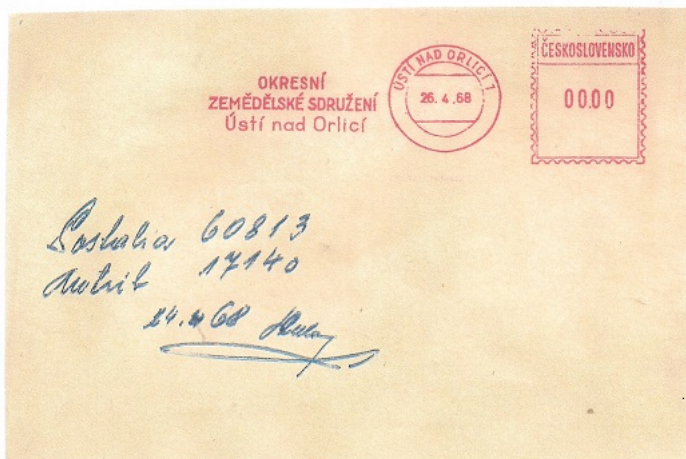 OKRESNÍ
ZEMĚDĚLSKÉ SDRUŽENÍ
Ústí nad Orlicí
ÚSTÍ NAD ORLICÍ 1
26.4.68
ČESKOSLOVENSKO
00.00
60813
17140
24.4 68